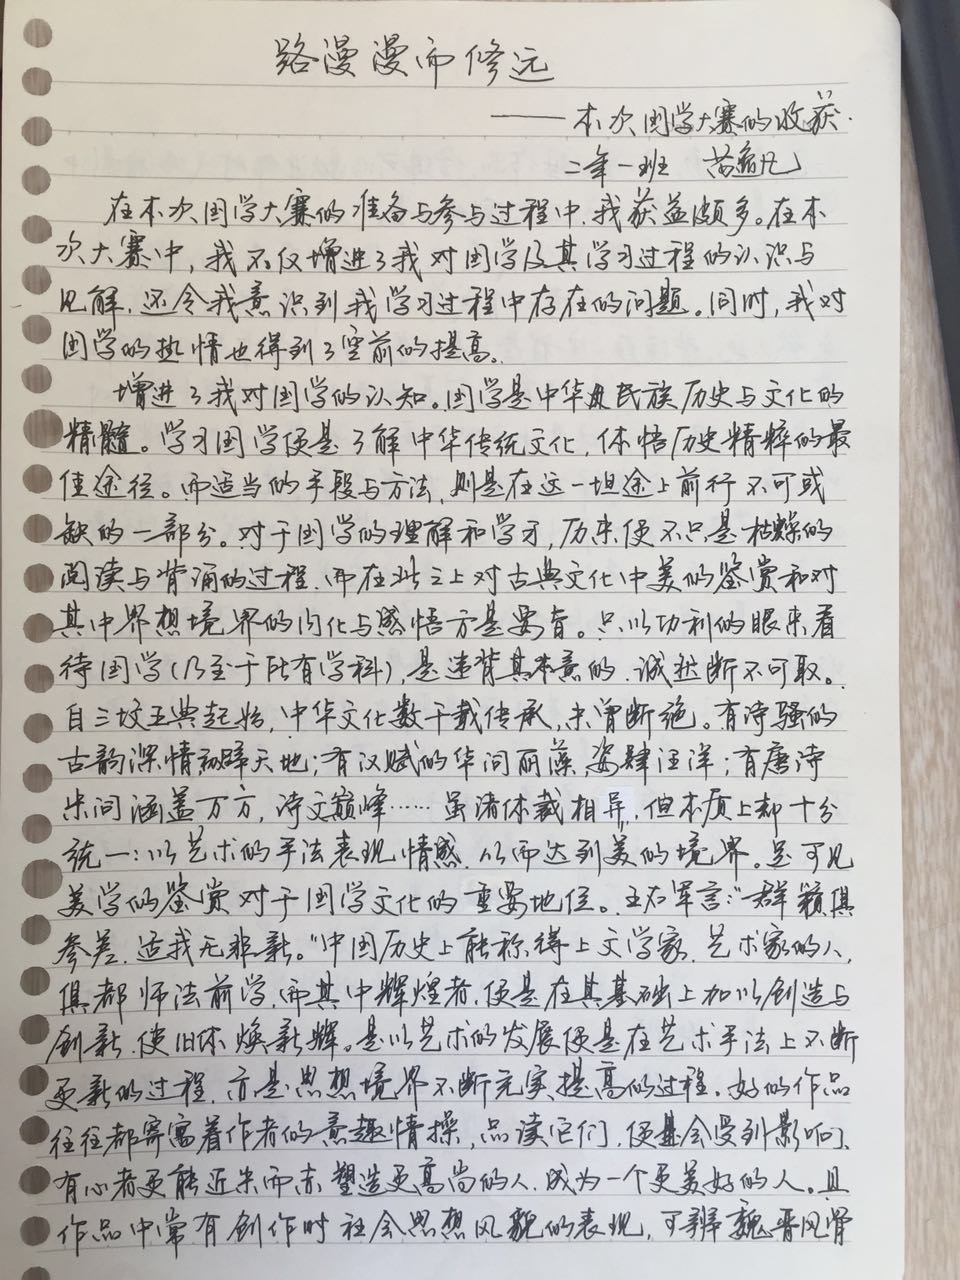 路漫漫而修远
——本次国学大赛的收获.
二年一班 苗逾凡
在本次国学大赛的准备与参与过程中,我获益颇多。在本
次大赛中,我不仅增进了我对国学及其学习过程的认识与
见解,还令我意识到我学习过程中存在的问题。同时,我对
国学的热情也得到了空前的提高。
增进了我对国学的认知。国学是中华民族历史与文化的
精髓。学习国学便是了解中华传统文化,体悟历史精粹的最
佳途径。而适当的手段与方法,则是在这一坦途上前行不可或
缺的一部分。对于国学的理解和学习,历来便不只是枯燥的
阅读与背诵的过程,而在此之上对古典文化中美的鉴赏和对
其中界想境界的内化与感悟方是要旨。只以功利的眼来看
待国学(乃至于所有学科),是违背其本意的,诚然断不可取。
自三坟五典起始,中华文化数千载传承,未曾断绝。有诗骚的
古韵深情初辟天地;有汉赋的华词丽藻,姿肆汪洋;有唐诗
宋词涵盖万方,诗文巅峰……虽诸体裁相异,但本质上却十分
统一:以艺术的手法表现情感,从而达到美的境界。足可见
美学的鉴赏对于国学文化的重要地位。王右军言:“群籁俱
参差,适我无非新。”中国历史上能称得上文学家,艺术家的人,
俱都师法前学,而其中辉煌者,便是在其基础上加以创造与
创新,使旧体焕新辉。是以艺术的发展便是在艺术手法上不断
更新的过程,亦是思想境界不断充实提高的过程。好的作品
往往都寄寓着作者的意趣情操,品读它们,便是会受到影响,
有心者更能近朱而赤,塑造更高尚的人,成为一个更美好的人。且
作品中常有创作时社会思想风貌的表现,可辨魏晋风骨